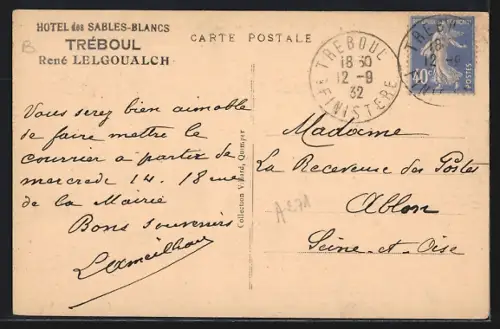 HOTEL des SABLES-BLANCS
TRÉBOUL
René LELGOUALCH
CARTE POSTALE
TREBOUL
18 30
12 - 9
32
FINISTERE
TREBOUL
18
12 - 9
40c
POSTES
B
Vous serez bien aimable
de faire mettre le
courrier à partir de
mercredi 14. 18 rue
de la Mairie
Bons souvenirs
Collection Villard, Quimper
A-271
Madame
La Receveuse des Postes
Ablon
Seine-et-Oise